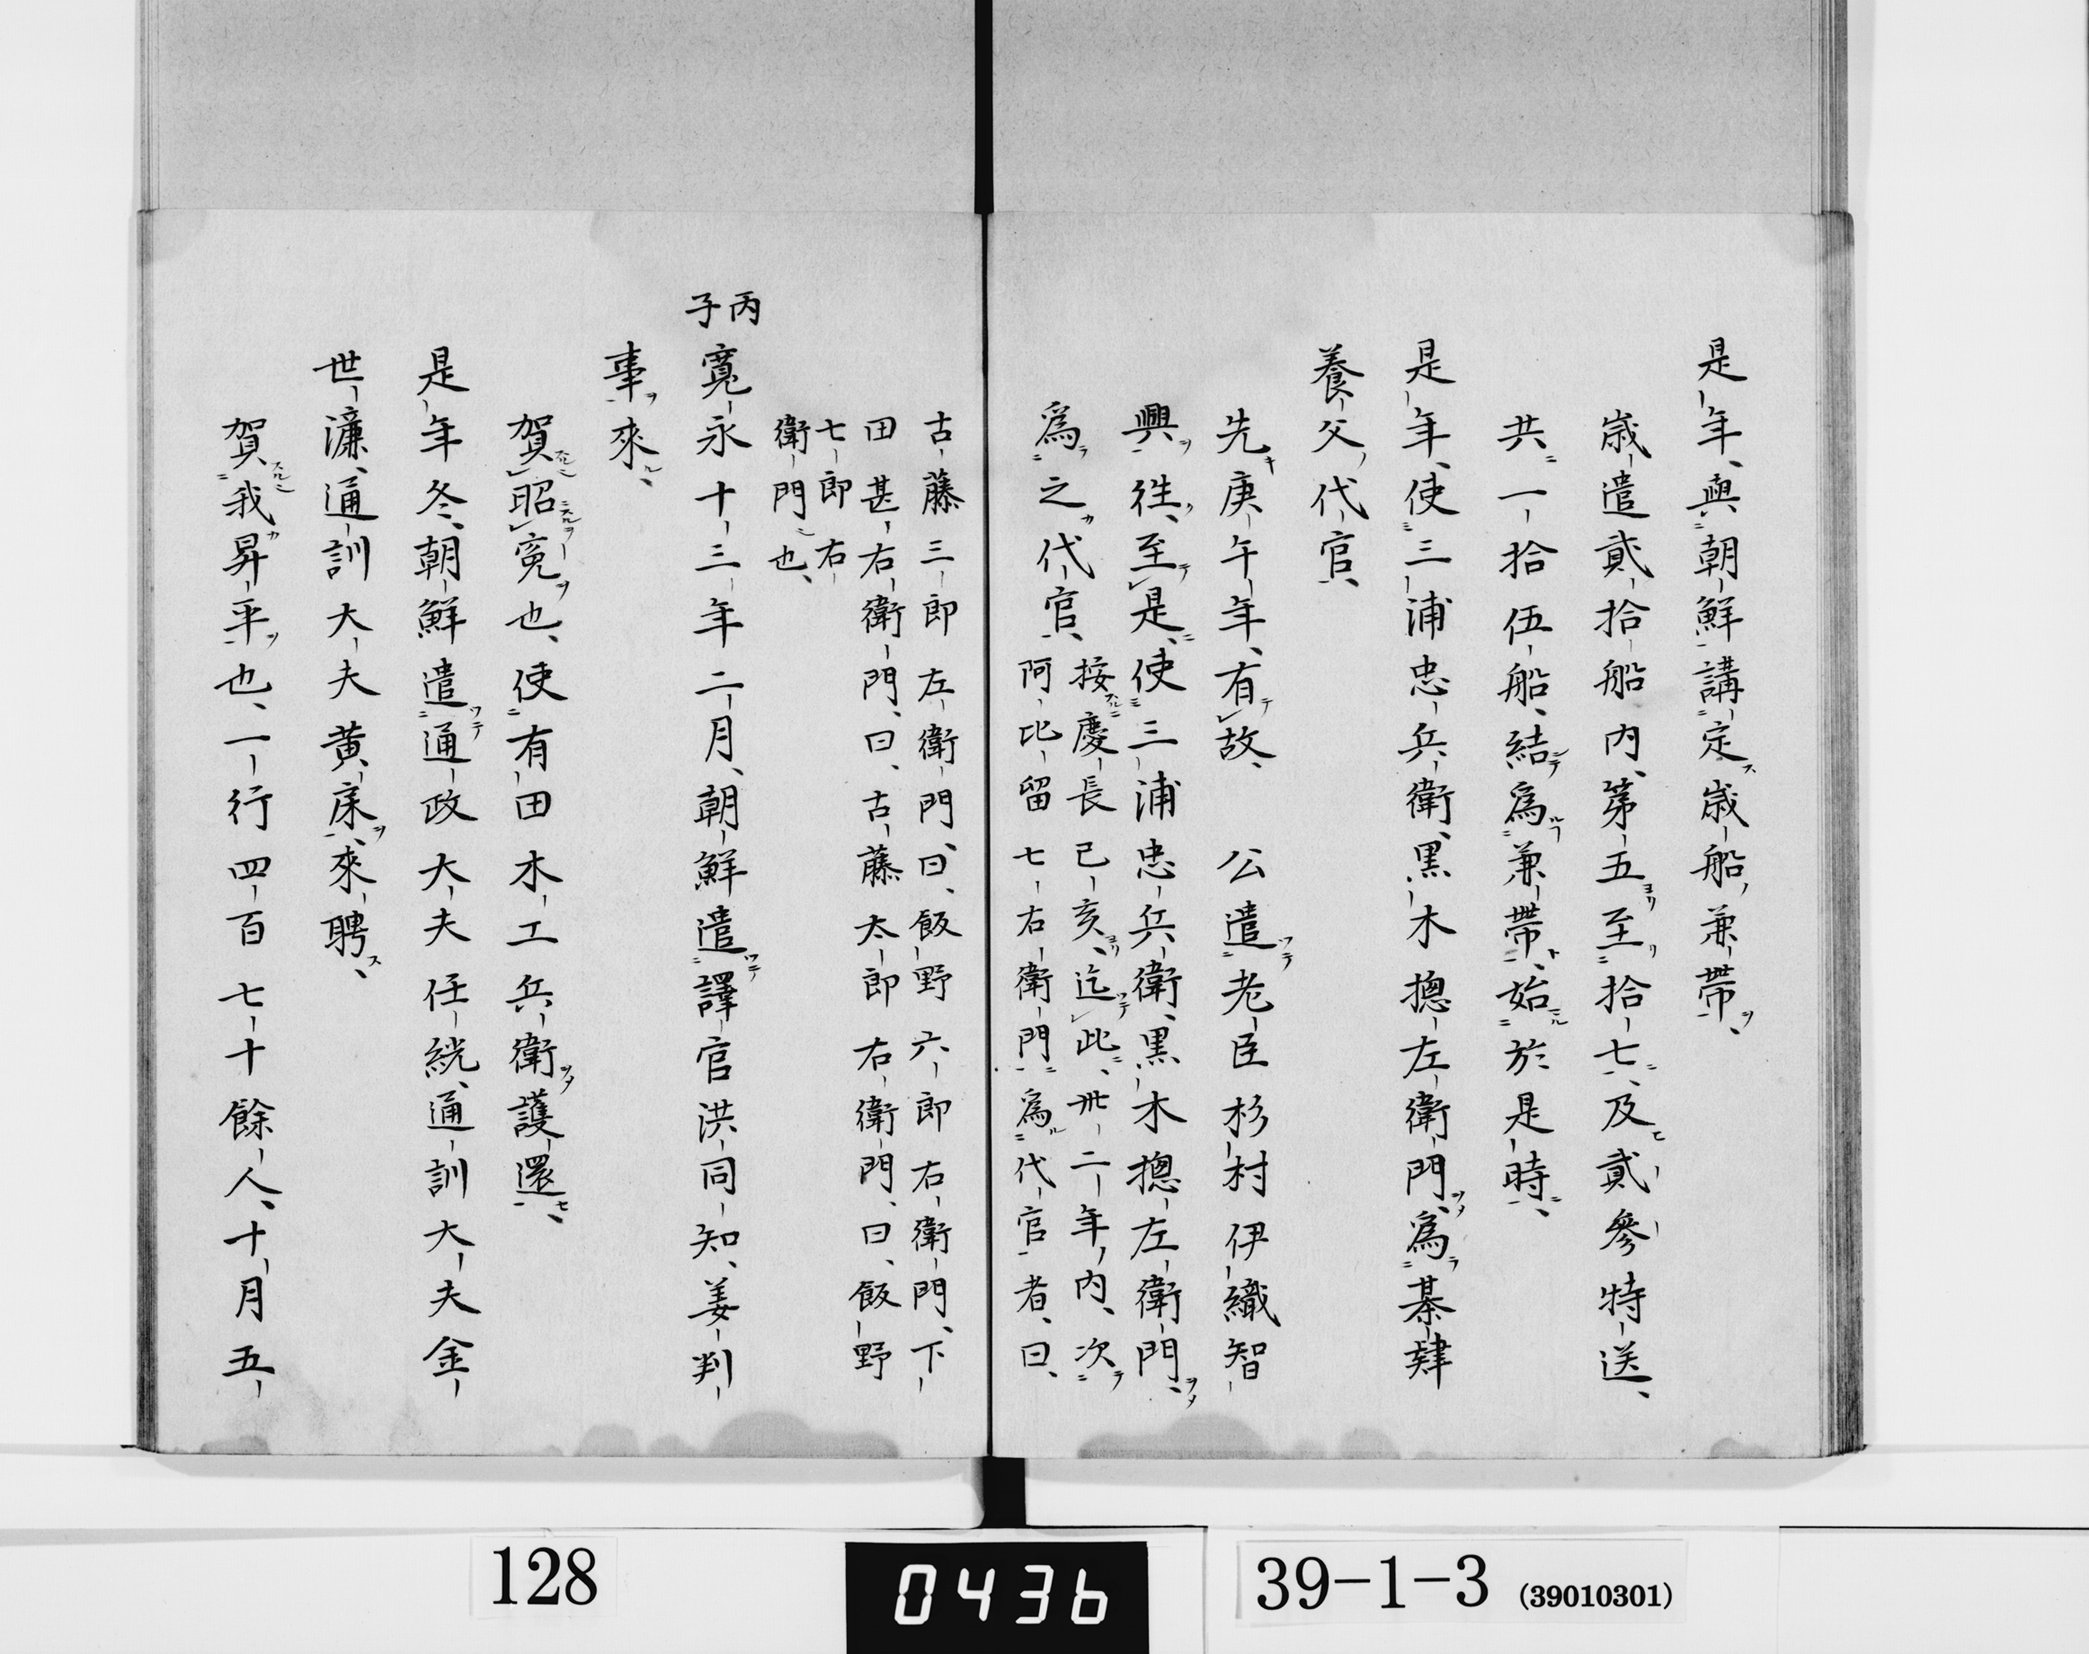 是年、與朝鮮講定歳船兼帶、
歳遣貳拾船内、第五至拾七、及貳參特送、
共一拾伍船、結爲兼帶、始於是時、
是年、使三浦忠兵衛、黒木摠左衛門、爲綦肄
養父代官、
先庚午年、有故、 公遣老臣杉村伊織智
興徃、至是、使三浦忠兵衛、黒木摠左衛門、
爲之代官、按慶長己亥、迄此、卅二年内、次
阿比留七右衛門爲代官者、曰、
古藤三郎左衛門、曰、飯野六郎右衛門、下
田甚右衛門、曰、古藤太郎右衛門、曰、飯野
七郎右
衛門也、
丙子
寛永十三年二月、朝鮮遣譯官洪同知、姜判
事來、
賀昭寃也、使有田木工兵衛護還、
是年冬、朝鮮遣通政大夫任絖、通訓大夫金
世濂、通訓大夫黄㦿、來聘、
賀我昇平也、一行四百七十餘人、十月五
128
0436
39-1-3 (39010301)